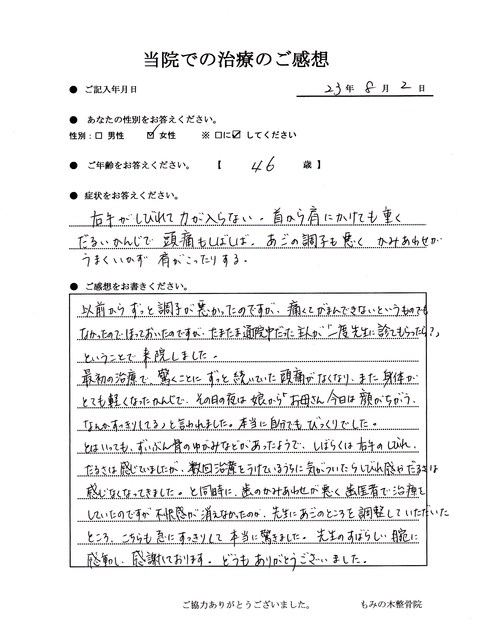 当院での治療のご感想
● ご記入年月日 23年 8月 2日
● あなたの性別をお答えください。
性別：□ 男性 ☑ 女性 ※ □に☑ してください
● ご年齢をお答えください。 【 46 歳 】
● 症状をお答えください。
右手がしびれて力が入らない。首から肩にかけても重く
だるいかんじで 頭痛もしばしば。あごの調子も悪く かみあわせが
うまくいかず 肩がこったりする。
● ご感想をお書きください。
以前から ずっと調子が悪かったのですが、痛くてがまんできないというものでも
なかったので ほっておいたのですが、たまたま通院中だった主人が「一度先生に診てもらったら？」
ということで 来院しました。
最初の治療で、驚くことに ずっと続いていた頭痛がなくなり、また身体が
とても軽くなったかんじで、その日の夜は 娘から「お母さん今日は 顔がちがう、
なんかすっきりしてる」と言われました。本当に自分でも びっくりでした。
とはいっても、ずいぶん骨のゆがみなどがあったようで、しばらくは右手のしびれ、
だるさは感じていましたが、数回治療をうけているうちに 気がついたらしびれ感やだるさは
感じなくなってきました。と同時に、歯のかみあわせが悪く歯医者で治療を
していたのですが 不快感が消えなかったのが、先生にあごのところを調整していただいた
ところ、こちらも急にすっきりして 本当に驚きました。先生のすばらしい腕に
感動し、感謝しております。どうもありがとうございました。
ご協力ありがとうございました。 もみの木整骨院